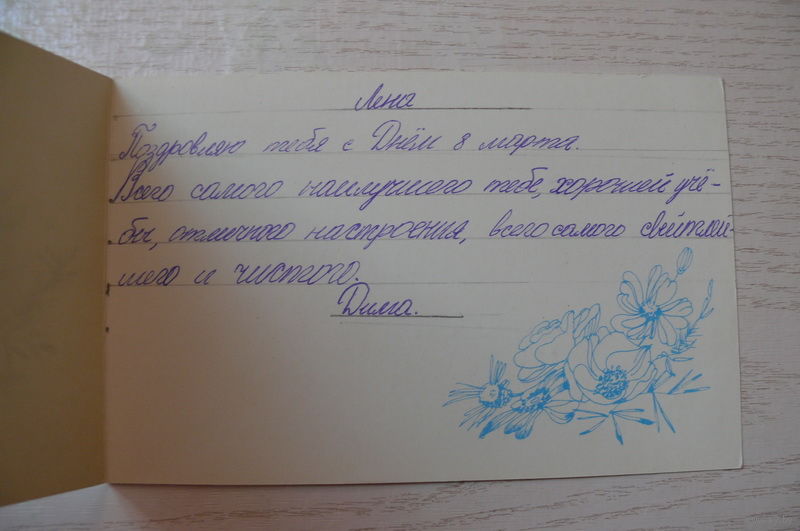 Лена
Поздровляю тебя с Днём 8 марта.
Всего самого наилучшего тебе, хорошей учё-
бы, отличного настроения, всего самого свейтлей-
шего и чистого.
Дима.